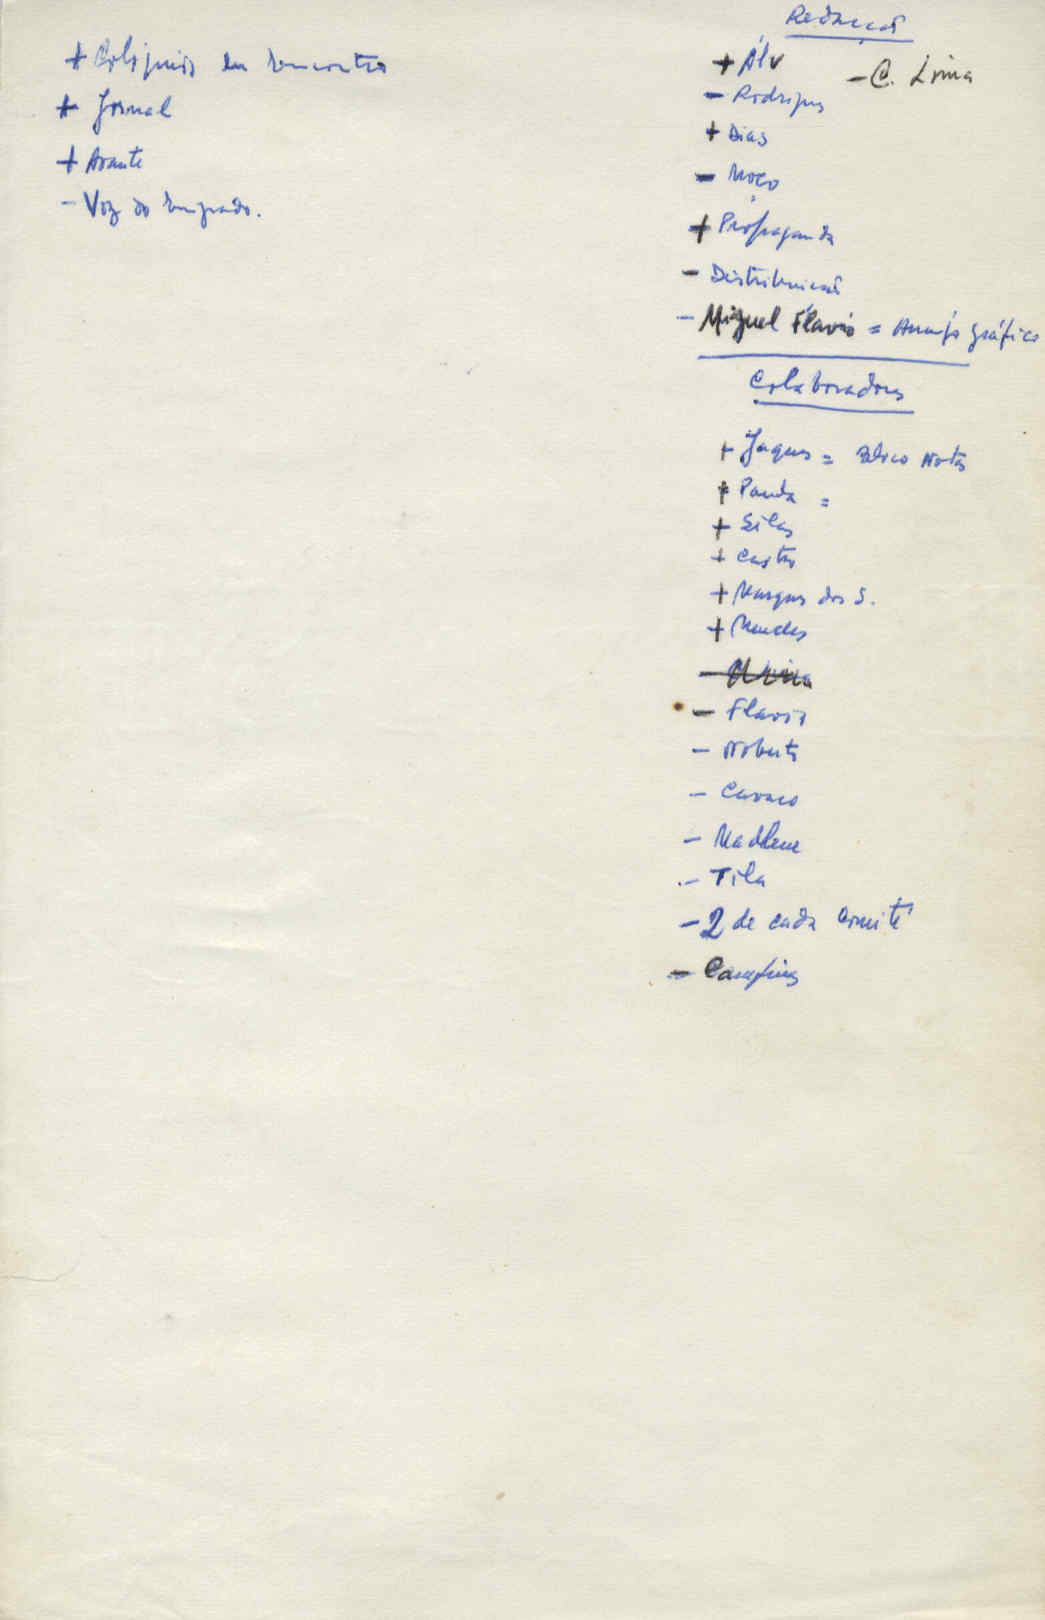 + Colóquio ou encontro
+ Jornal
+ Avante
- Voz do
Redacção
+ Álv
- C. Lima
- Rodrigues
+ Dias
- Moço
+ Propaganda
- Distribuição
- Miguel Flavio = Arranjo gráfico
Colaboradores
+ Jaques = Bloco Notas
+ Panda =
+ Silas
+ Castro
+ Marques dos S.
+ Mendes
- Flavio
- Norberto
- Cavaco
- Madlene
- Tila
- 2 de cada Comité
- Campinos